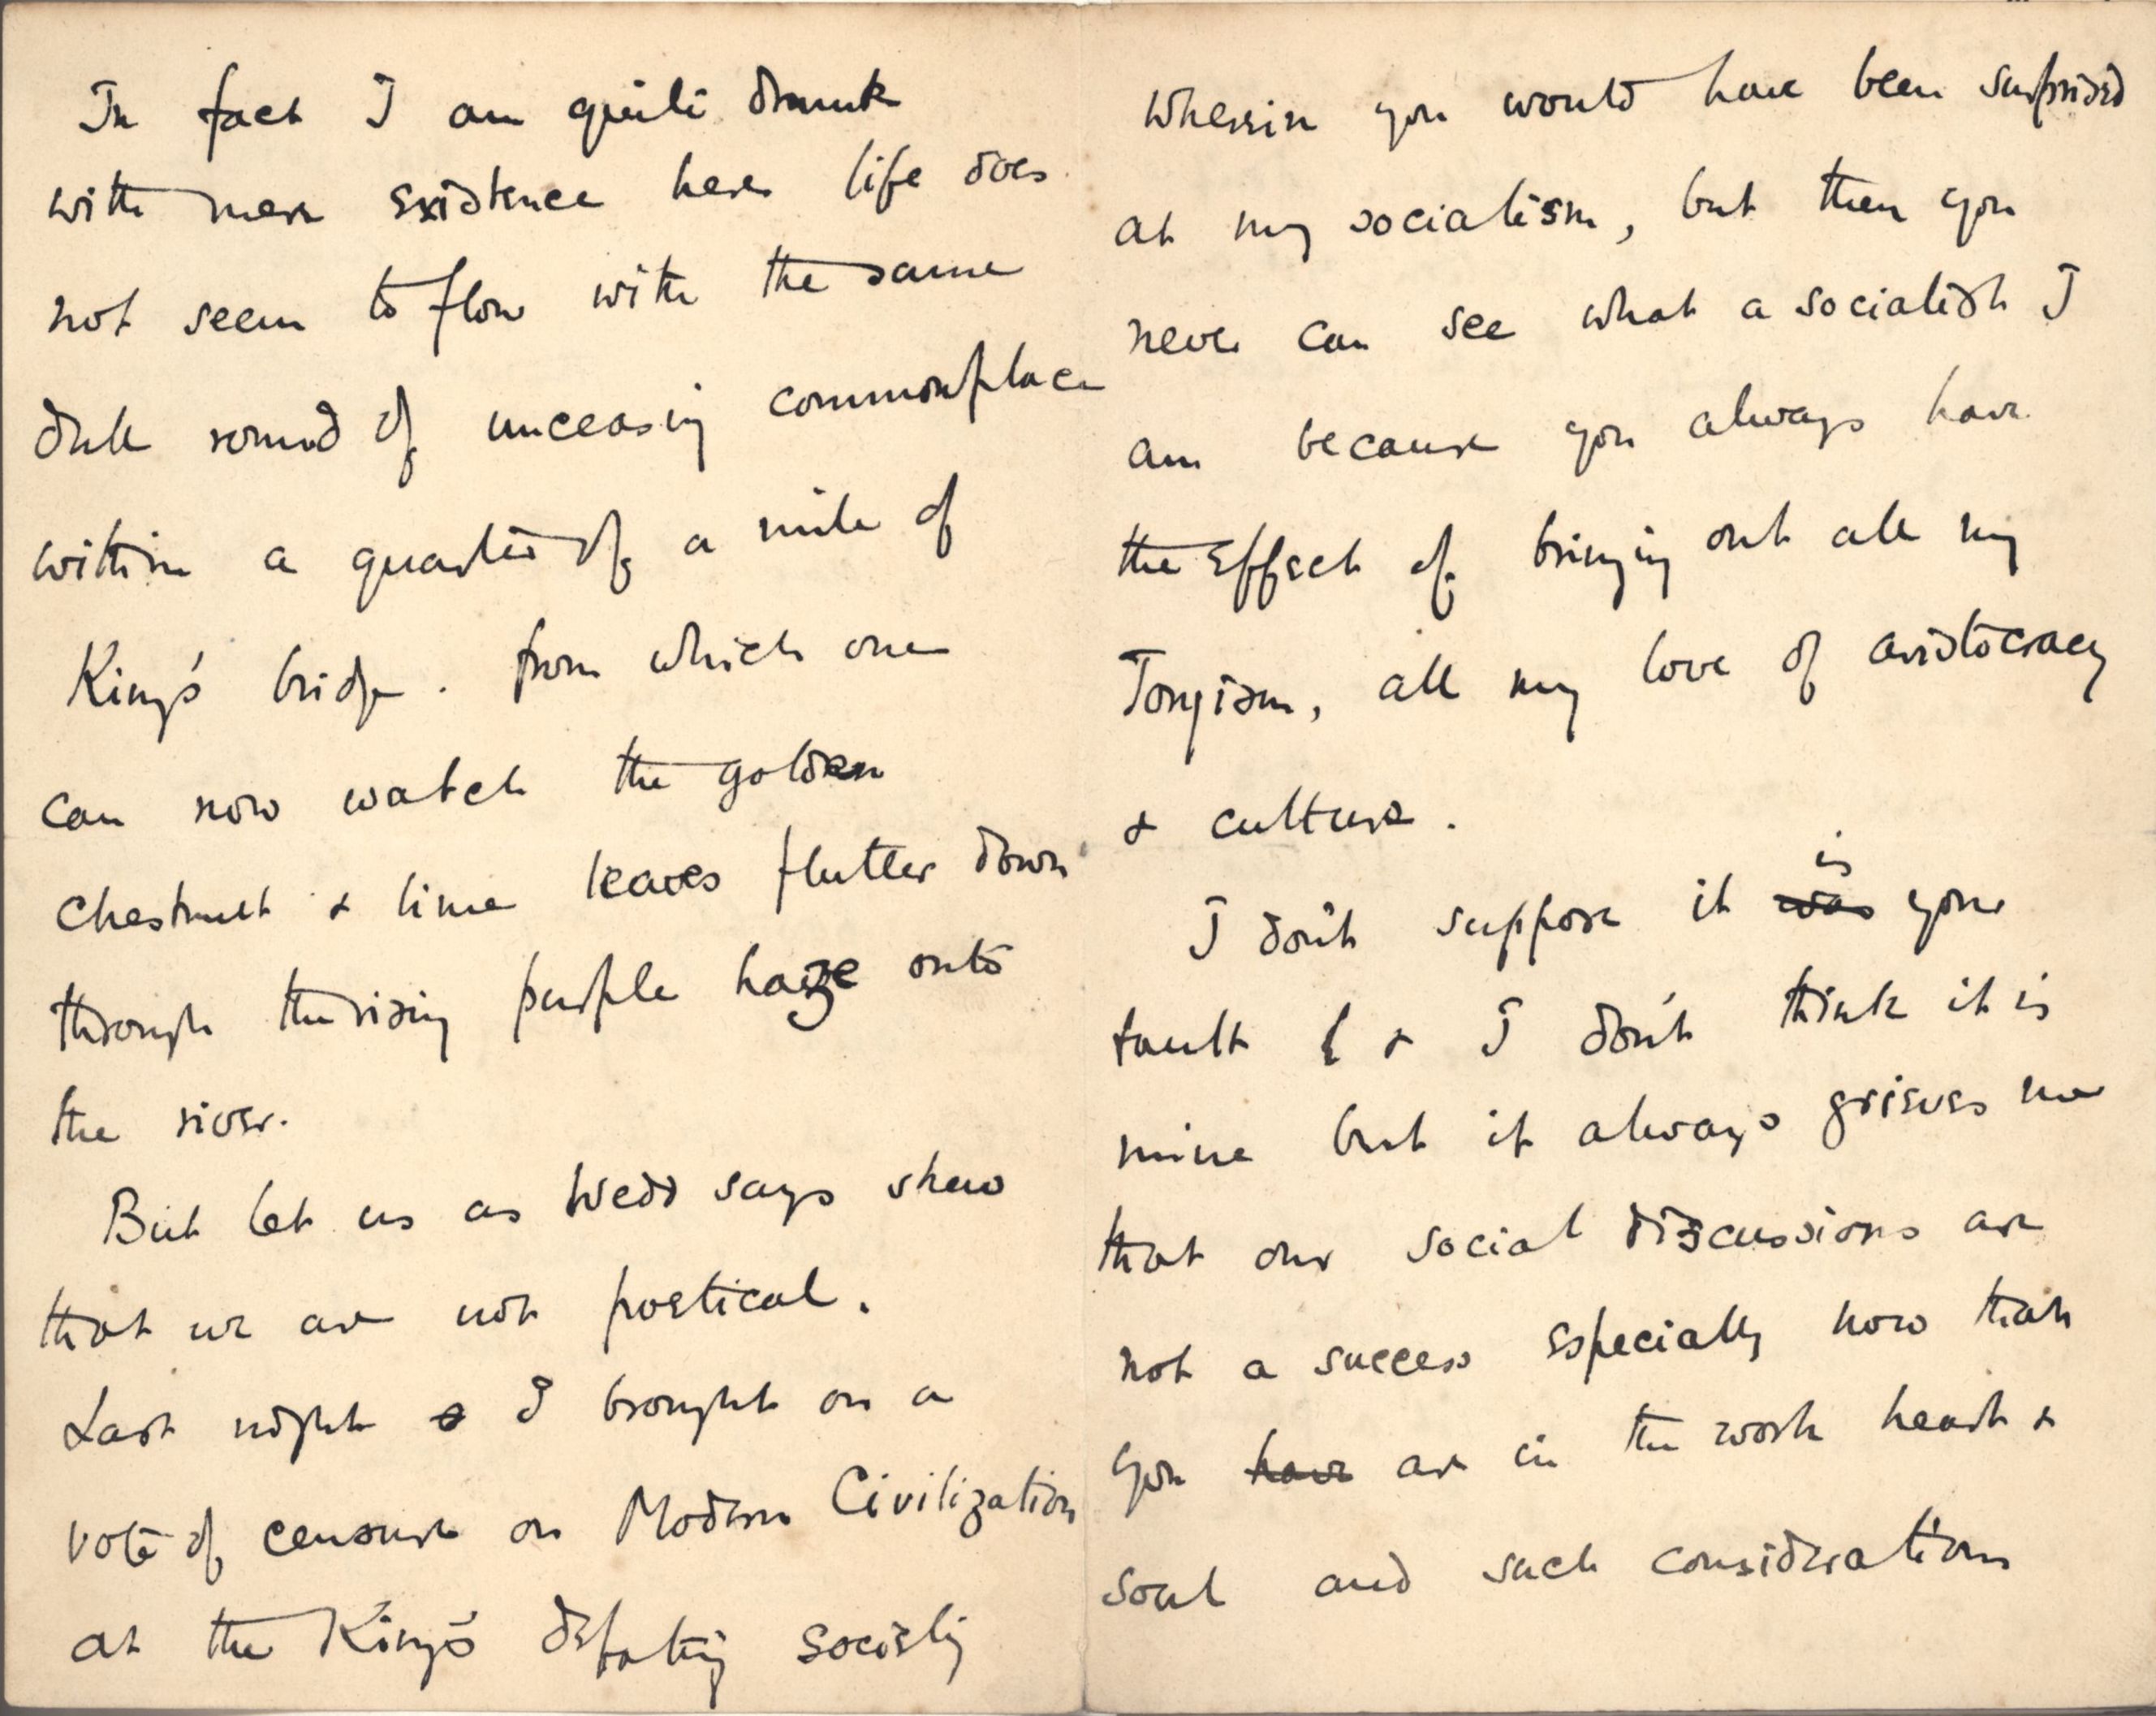 In fact I am quite drunk
with mere existence here life does
not seem to flow with the same
dull round of unceasing commonplace
within a quarter of a mile of
King's bridge. from which one
can now watch the golden
chestnut & lime leaves flutter down
through the rising purple haze onto
the river.
But let us as Wedd says shew
that we are not poetical.
Last night I brought on a
vote of censure on Modern Civilization
at the King's debating society
wherein you would have been surprised
at my socialism, but then you
never can see what a socialist I
am because you always have
the effect of bringing out all my
Toryism, all my love of aristocracy
& culture.
I don't suppose it was is your
fault & I don't think it is
mine but it always grieves me
that our social discussions are
not a success especially now that
you have are in the work heart &
soul and such considerations